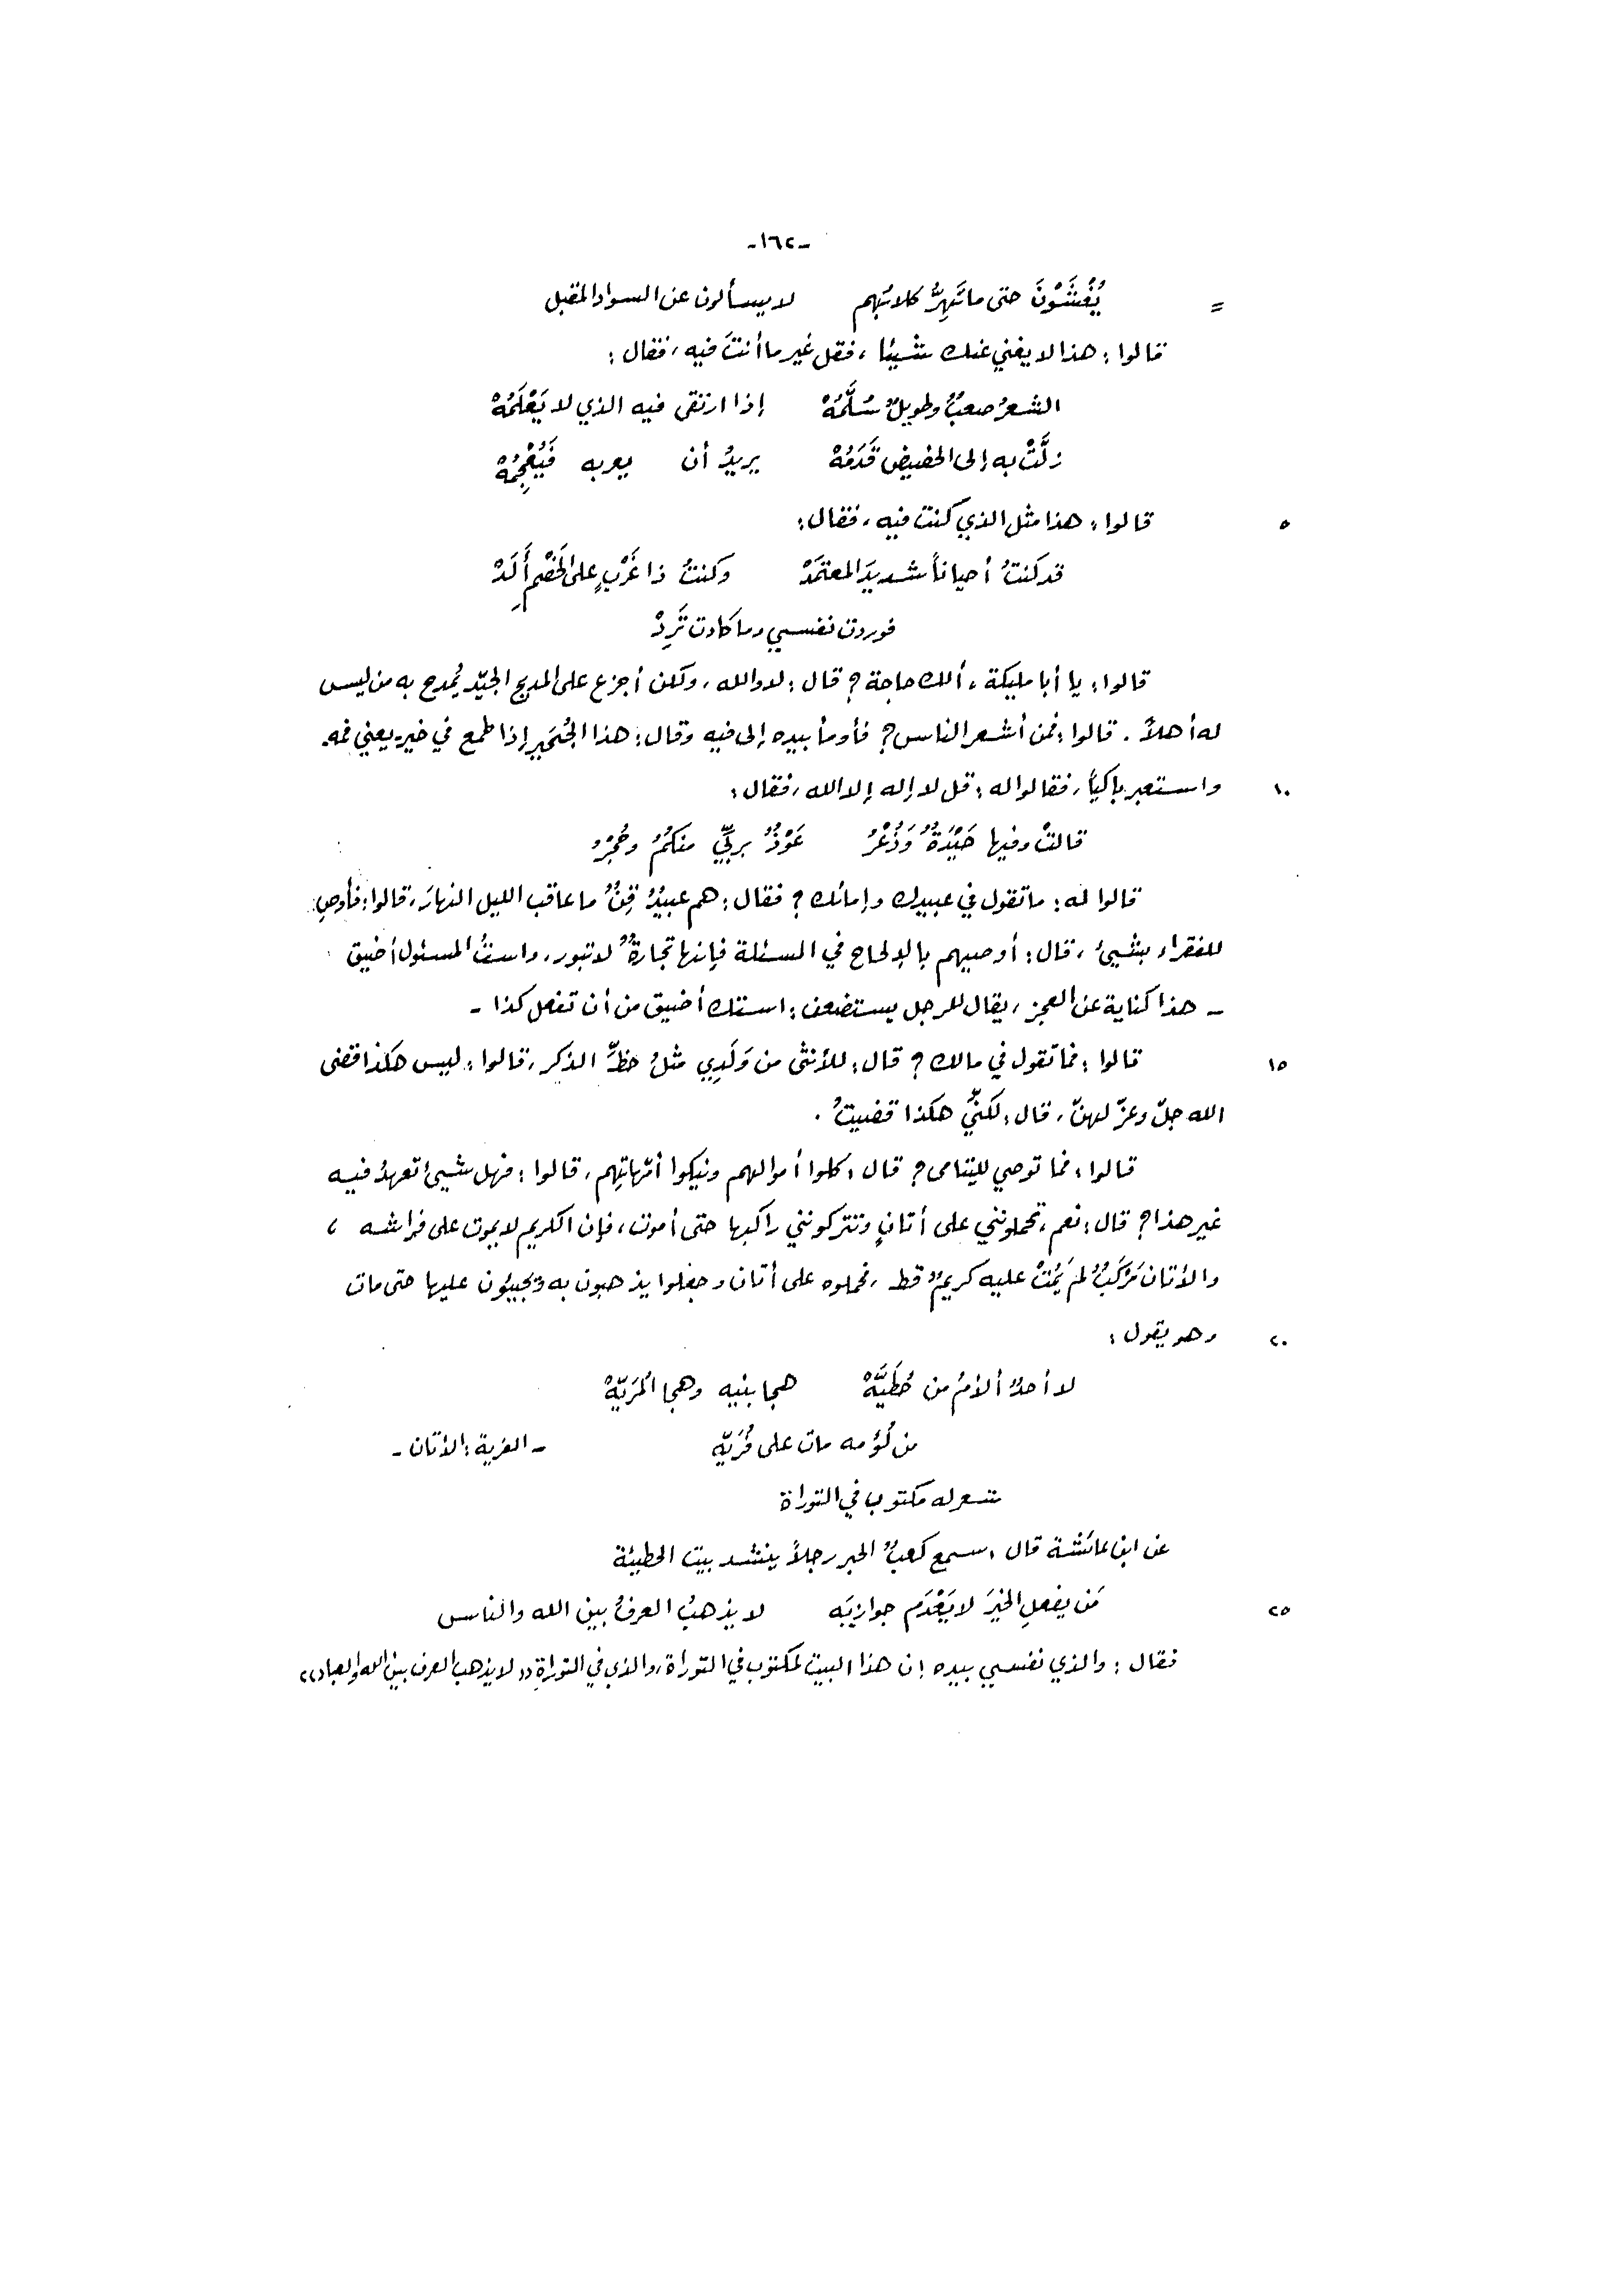 -١٦٢-
= يُغْشَوْنَ حتى ما تَهِرُّ كلابُهم لا يسألون عن السواد المقبل
قالوا: هذا لا يغني عنك شيئا، فقل غير ما أنتَ فيه، فقال:
الشعرُ صعبٌ وطويلٌ سُلَّمُهْ إذا ارتقى فيه الذي لا يَعْلَمُهْ
زلَّتْ به إلى الحضيض قَدَمُهْ يريدُ أن يعربه فَيُعْجِمُهْ
٥ قالوا: هذا مثل الذي كنت فيه، فقال:
قد كنتُ أحياناً شديدَ المعتمَدْ وكنتُ ذا غَرْبٍ على الخَصْمِ أَلَدْ
فوردت نفسي وما كادت تَرِدْ
قالوا: يا أبا مليكة، ألك حاجة؟ قال: لا والله، ولكن أجزع على المديح الجيّد يُمدح به من ليس
له أهلاً. قالوا: فمن أشعر الناس؟ فأومأ بيده إلى فيه وقال: هذا الحُجَير إذا طمع في خير يعني فمه.
١٠ واستعبر باكياً، فقالوا له: قل لا إله إلا الله، فقال:
قالتْ وفيها حَيْدَةٌ وَذُعْرُ عَوْذٌ بربّي منكمُ وحُجْرُ
قالوا له: ما تقول في عبيدك وإمائك؟ فقال: هم عبيدٌ قِنٌّ ما عاقب الليل النهارَ، قالوا: فأوصِ
للفقراء بشيئ، قال: أوصيهم بالإلحاح في المسئلة فإنها تجارةٌ لا تبور، واستُ المسئول أضيق
- هذا كناية عن العجز، يقال للرجل يستضعف: استك أضيق من أن تفعل كذا -
١٥ قالوا: فما تقول في مالك؟ قال: للأنثى من وَلَدِي مثلُ حظّ الذكر، قالوا: ليس هكذا قضى
الله جلّ وعزّ لهنّ، قال: لكنّي هكذا قضيتُ.
قالوا: فما توصي لليتامى؟ قال: كلوا أموالهم ونيكوا أمّهاتِهم، قالوا: فهل شيئ تعهدُ فيه
غير هذا؟ قال: نعم، تحملونني على أتانٍ وتتركونني راكبها حتى أموت، فإن الكريم لا يموت على فراشه،
والأتان مَرْكَبٌ لم يَمُتْ عليه كريمٌ قط، فحملوه على أتان وجعلوا يذهبون به ويجيئون عليها حتى مات
٢٠ وهو يقول:
لا أحدٌ ألأمُ من حُطَيَّهْ هجا بنيه وهجا المُرَيّهْ
من لُؤمه مات على فُرَيّه - الفرية: الأتان -
شعر له مكتوب في التوراة
عن ابن عائشة قال: سمع كعبُ الحبر رجلاً ينشد بيت الحطيئة
٢٥ مَن يفعلِ الخيرَ لا يَعْدَم جوازيَه لا يذهبُ العرفُ بين الله والناس
فقال: والذي نفسي بيده إن هذا البيت لمكتوب في التوراة، والذي في التوراة «لا يذهب العرف بين الله والعباد»